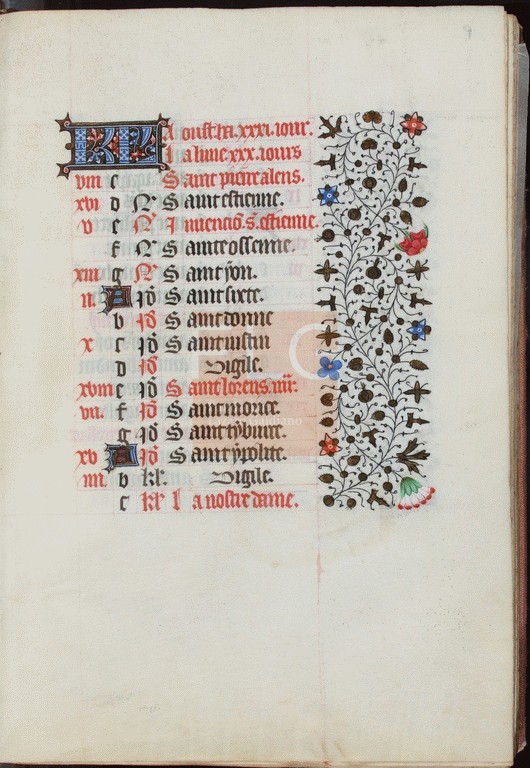 9
KL Aoust ha .xxxi. iour.
La lune .xxx. iours
viii c Saint pierre alens.
xvi d N Saint estienne.
v e N Inuencio. s. estienne.
f N Sainte ossenne.
xiii g N Saint yon.
ii A id Saint sixte.
b id Saint donne
x c id Saint iustin
d id Vigile.
xviii e id Saint lorens. iiii.
vii f id Saint morice.
g id Saint tyburce.
xv A id Saint ypolite.
iiii b kl. Vigile.
c kl La nostre dame.